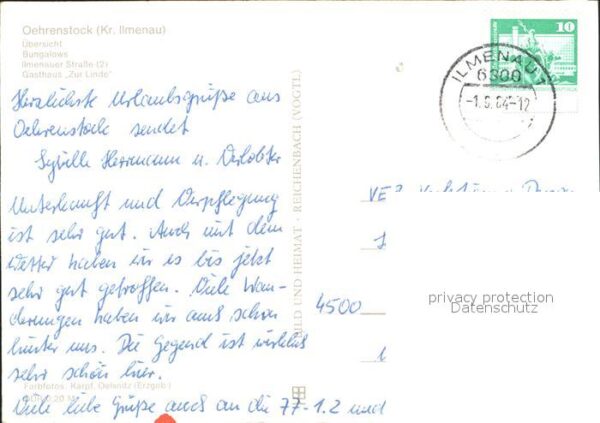 Oehrenstock (Kr. Ilmenau)
Übersicht
Bungalows
Ilmenauer Straße (2)
Gasthaus „Zur Linde"
Herzlichste Urlaubsgrüße aus
Oehrenstock sendet
Sybille Herrmann u. Verlobter
Unterkunft und Verpflegung
ist sehr gut. Auch mit dem
Wetter haben wir es bis jetzt
sehr gut getroffen. Viele Wan-
derungen haben wir auch schon
hinter uns. Die Gegend ist wirklich
sehr schön hier.
Farbfotos: Karpf, Oelsnitz (Erzgeb.)
Viele liebe Grüße auch an die 77-1.2 und
BILD UND HEIMAT · REICHENBACH (VOGTL)
10
ILMENAU 1
6300
-1.9.84-12
VEB
4500
privacy protection
Datenschutz